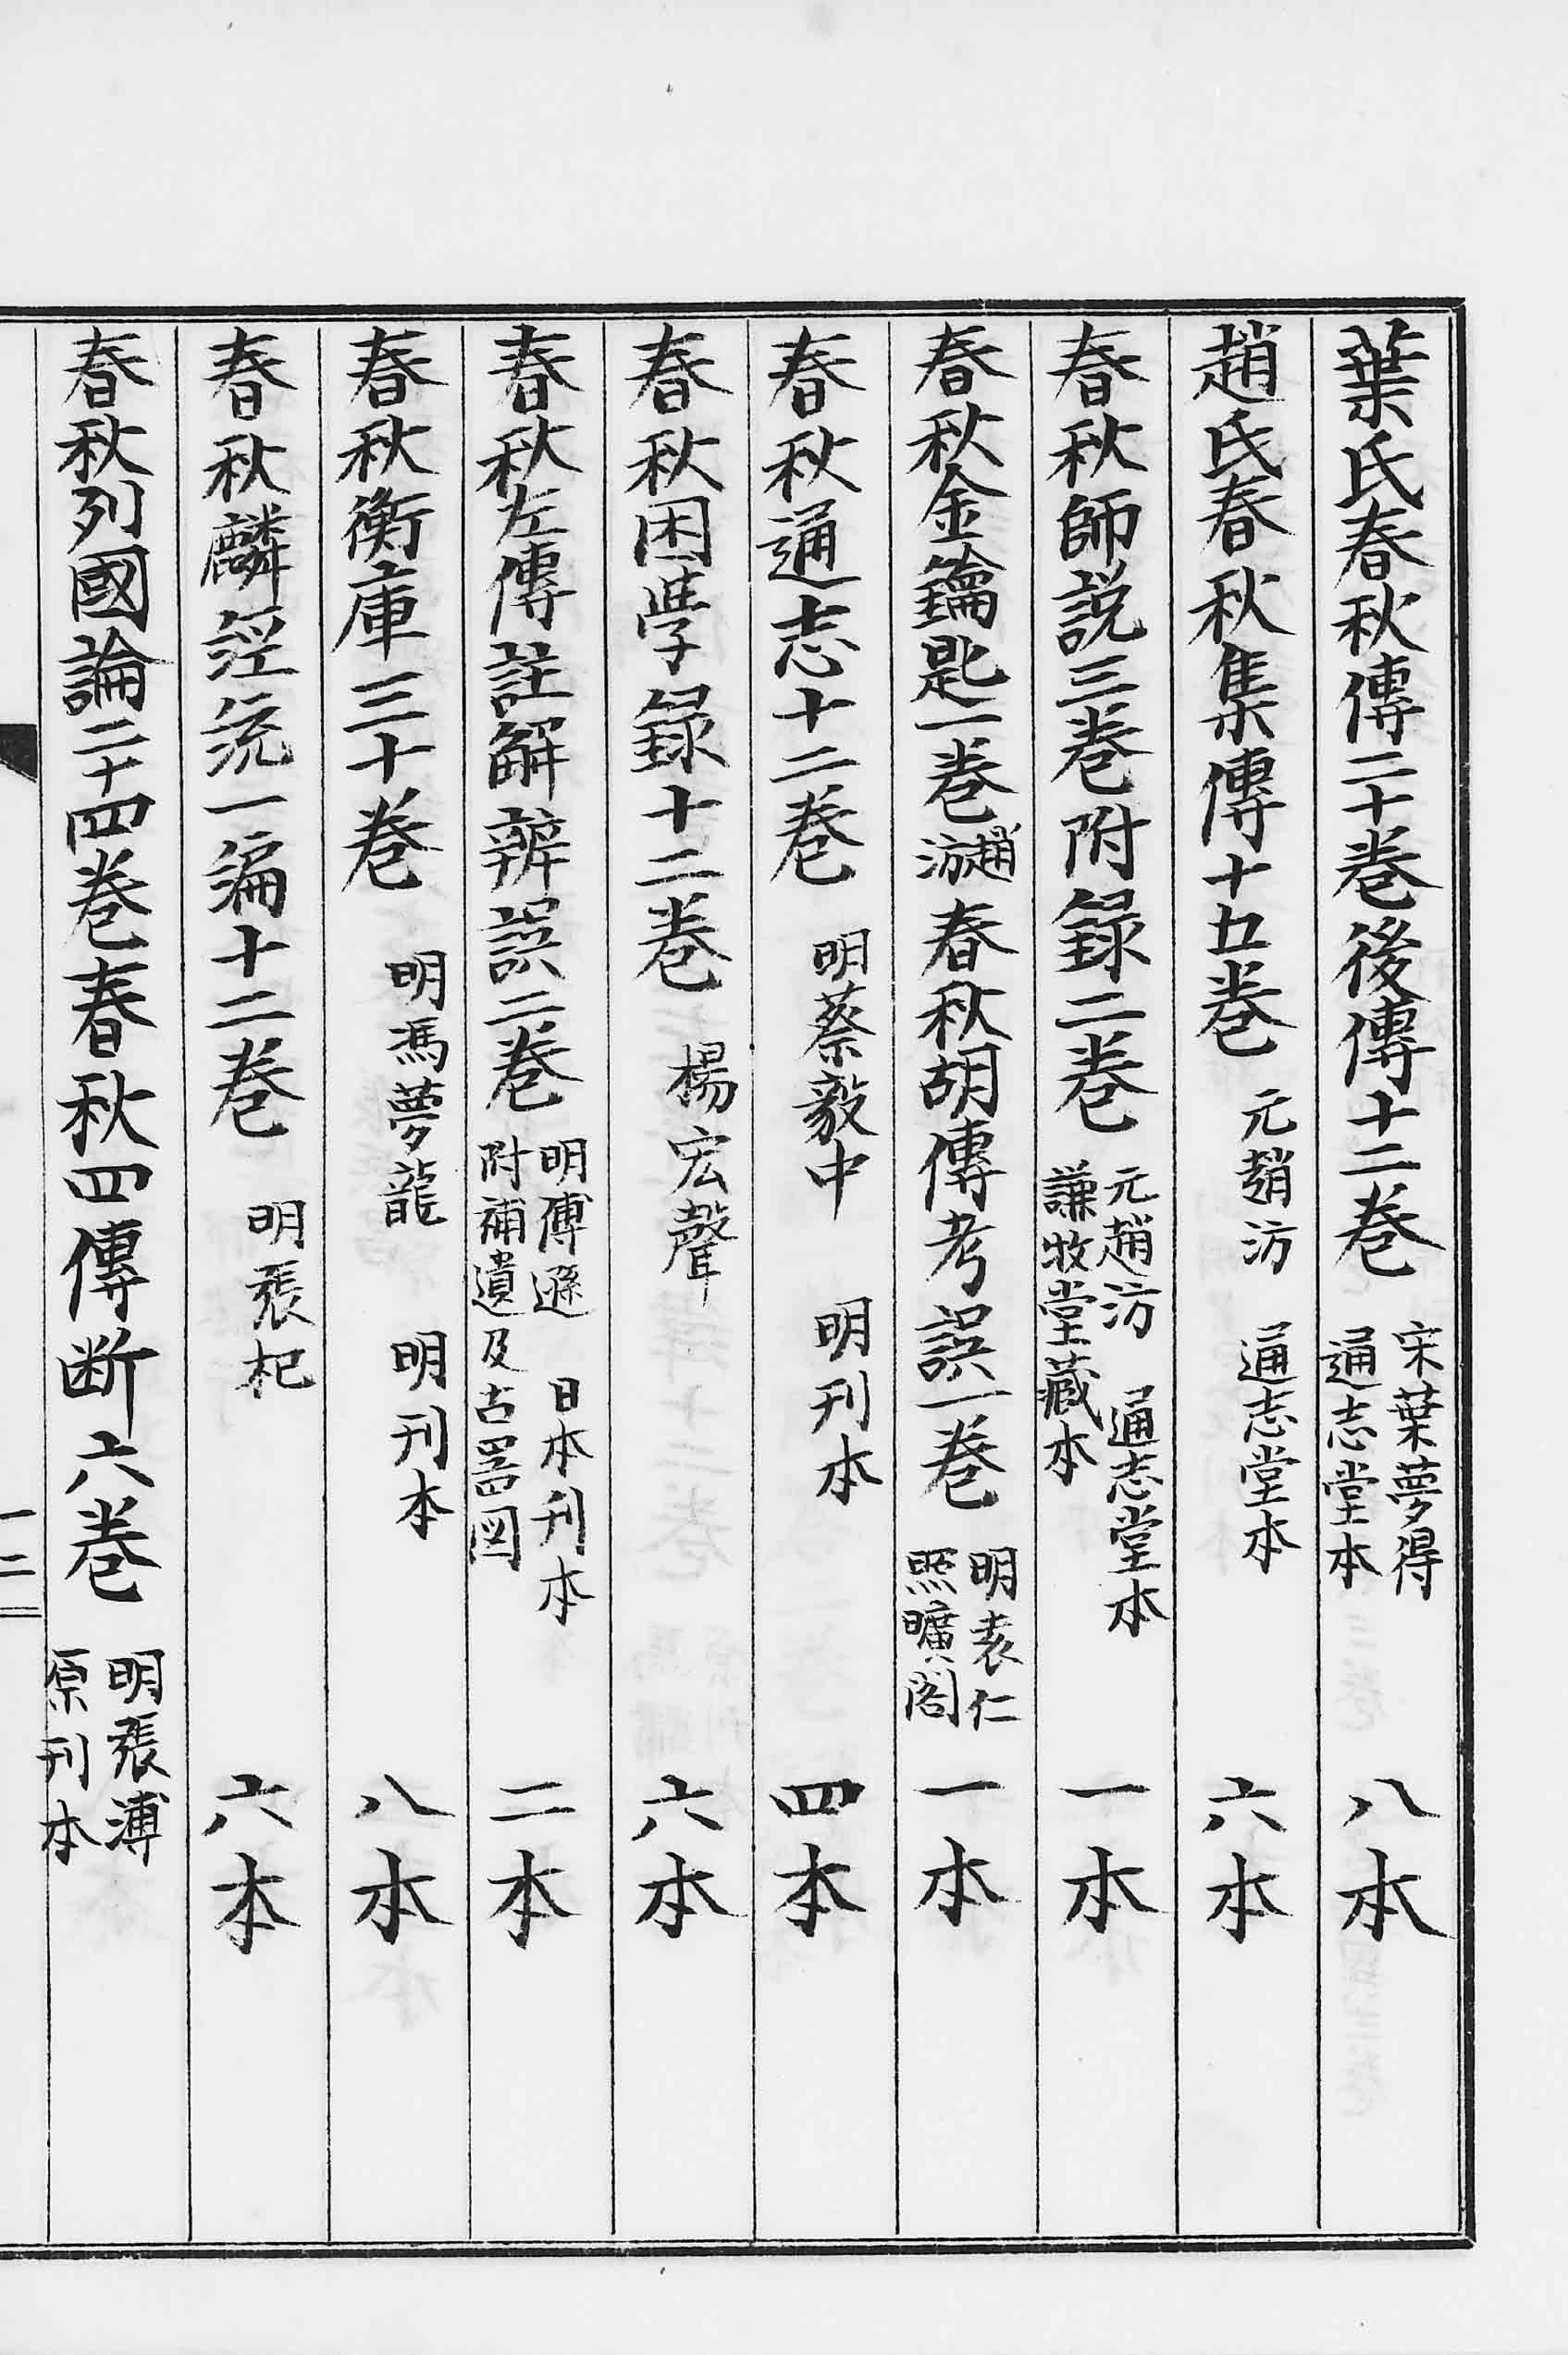 葉氏春秋傳二十卷後傳十二卷 宋葉夢得 通志堂本 八本
趙氏春秋集傳十五卷 元趙汸 通志堂本 六本
春秋師説三卷附録二卷 元趙汸 通志堂本 謙牧堂藏本 一本
春秋金鑰匙一卷 趙汸 春秋胡傳考誤一卷 明袁仁 照曠閣 一本
春秋通志十二卷 明蔡毅中 明刊本 四本
春秋困學録十二卷 楊宏聲 六本
春秋左傳註解辨誤二卷 明傅遜 日本刊本 附補遺及古器図 二本
春秋衡庫三十卷 明馮夢龍 明刊本 八本
春秋麟經統一編十二卷 明張杞 六本
春秋列國論二十四卷春秋四傳断六卷 明張溥 原刊本
一二